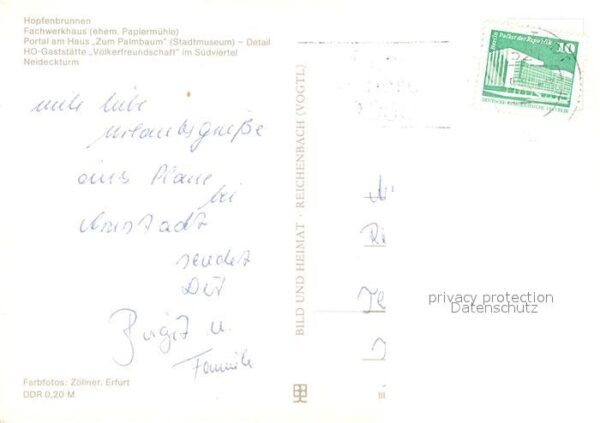 Hopfenbrunnen
Fachwerkhaus (ehem. Papiermühle)
Portal am Haus „Zum Palmbaum" (Stadtmuseum) – Detail
HO-Gaststätte „Völkerfreundschaft" im Südviertel
Neideckturm
liebe
Urlaubsgrüße
aus Plaue
bei
Arnstadt
sendet
Dir
Birgit u.
Familie
Farbfotos: Zöllner, Erfurt
DDR 0,20 M
BILD UND HEIMAT · REICHENBACH (VOGTL)
Berlin Palast der Republik
10
privacy protection
Datenschutz